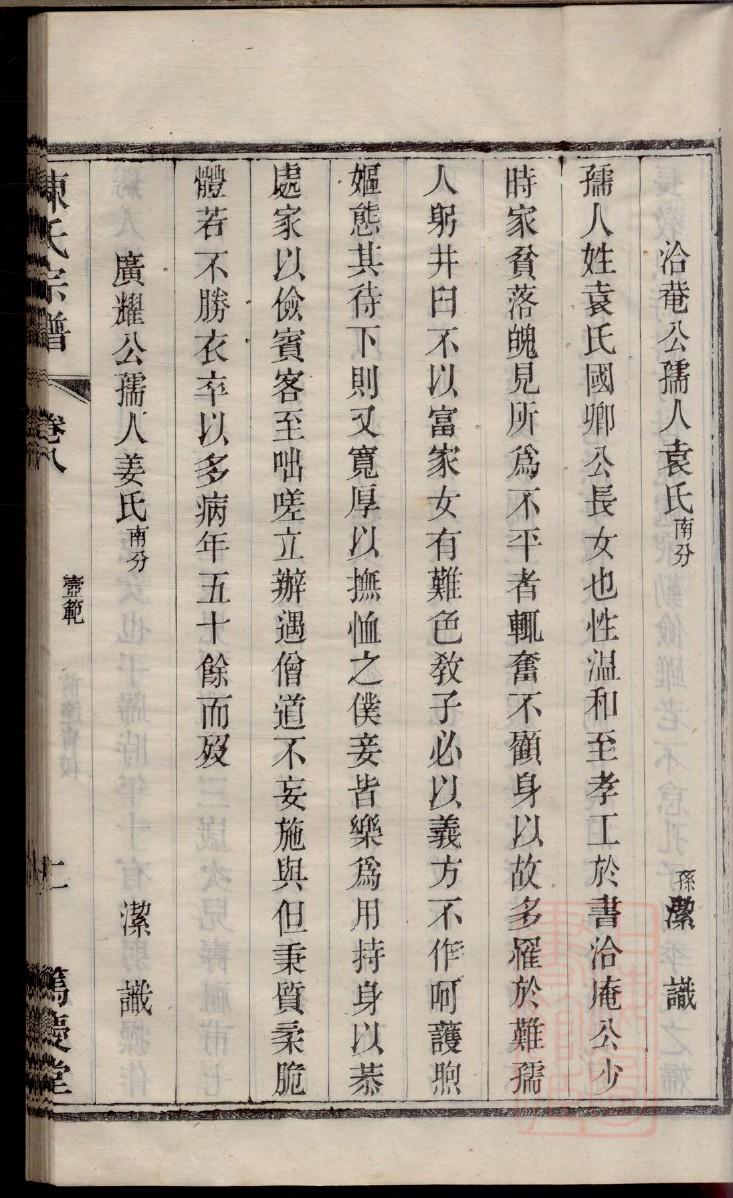 洽菴公孺人袁氏南分 孫潔識
孺人姓袁氏國卿公長女也性溫和至孝工於書洽庵公少
時家貧落魄見所爲不平者輒奮不顧身以故多罹於難孺
人躬井臼不以富家女有難色敎子必以義方不作呵護煦
嫗態其待下則又寬厚以撫恤之僕妾皆樂爲用持身以恭
處家以儉賓客至咄嗟立辦遇僧道不妄施與但秉質柔脆
體若不勝衣卒以多病年五十餘而歿
廣耀公孺人姜氏南分 潔識
陳氏宗譜 卷八 壼範 二 篤慶堂